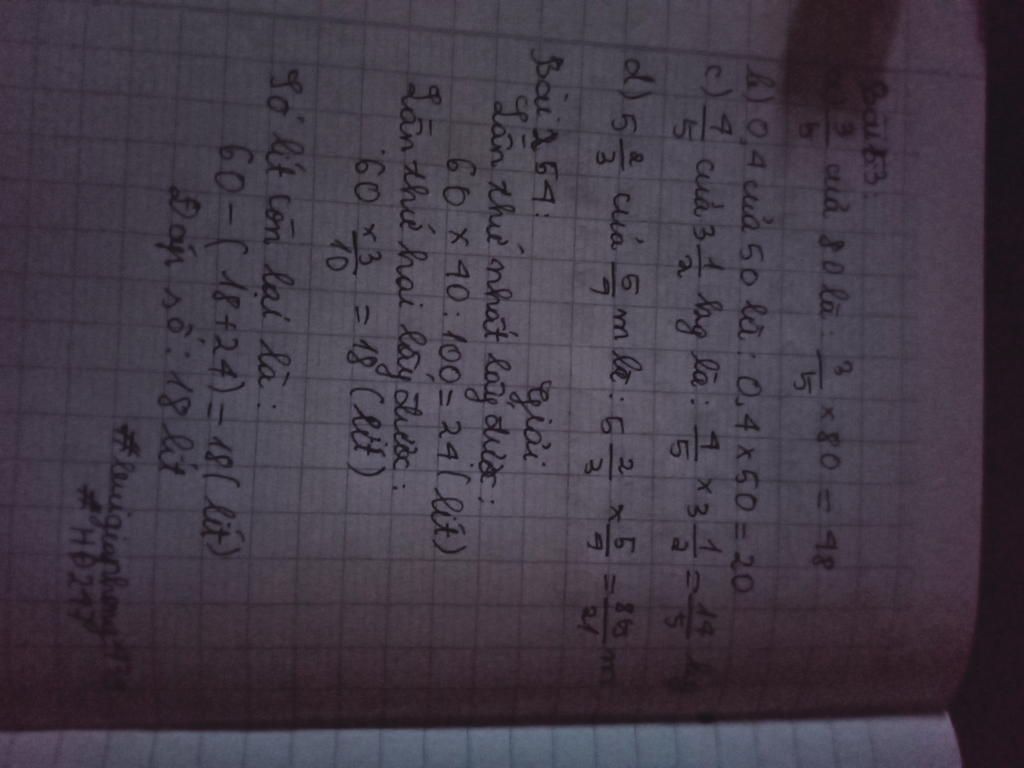 Bài 53:
a) 3/5 của 80 là: 3/5 × 80 = 48
b) 0,4 của 50 là: 0,4 × 50 = 20
c) 4/5 của 3 1/2 kg là: 4/5 × 3 1/2 = 14/5 kg
d) 5 2/3 của 5/7 m là: 5 2/3 × 5/7 = 85/21 m
Bài 2 54: Giải
Lần thứ nhất lấy được:
60 × 40 : 100 = 24 (lít)
Lần thứ hai lấy được:
60 × 3/10 = 18 (lít)
Số lít còn lại là:
60 - (18+24) = 18 (lít)
Đáp số: 18 lít